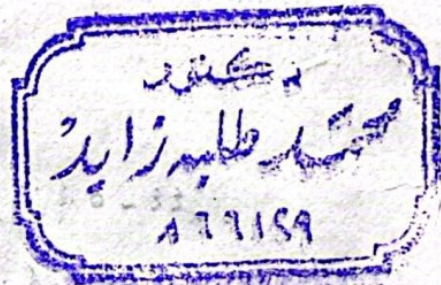 دكتور
محمد طلبه زايد
٨٦٦١٤٩